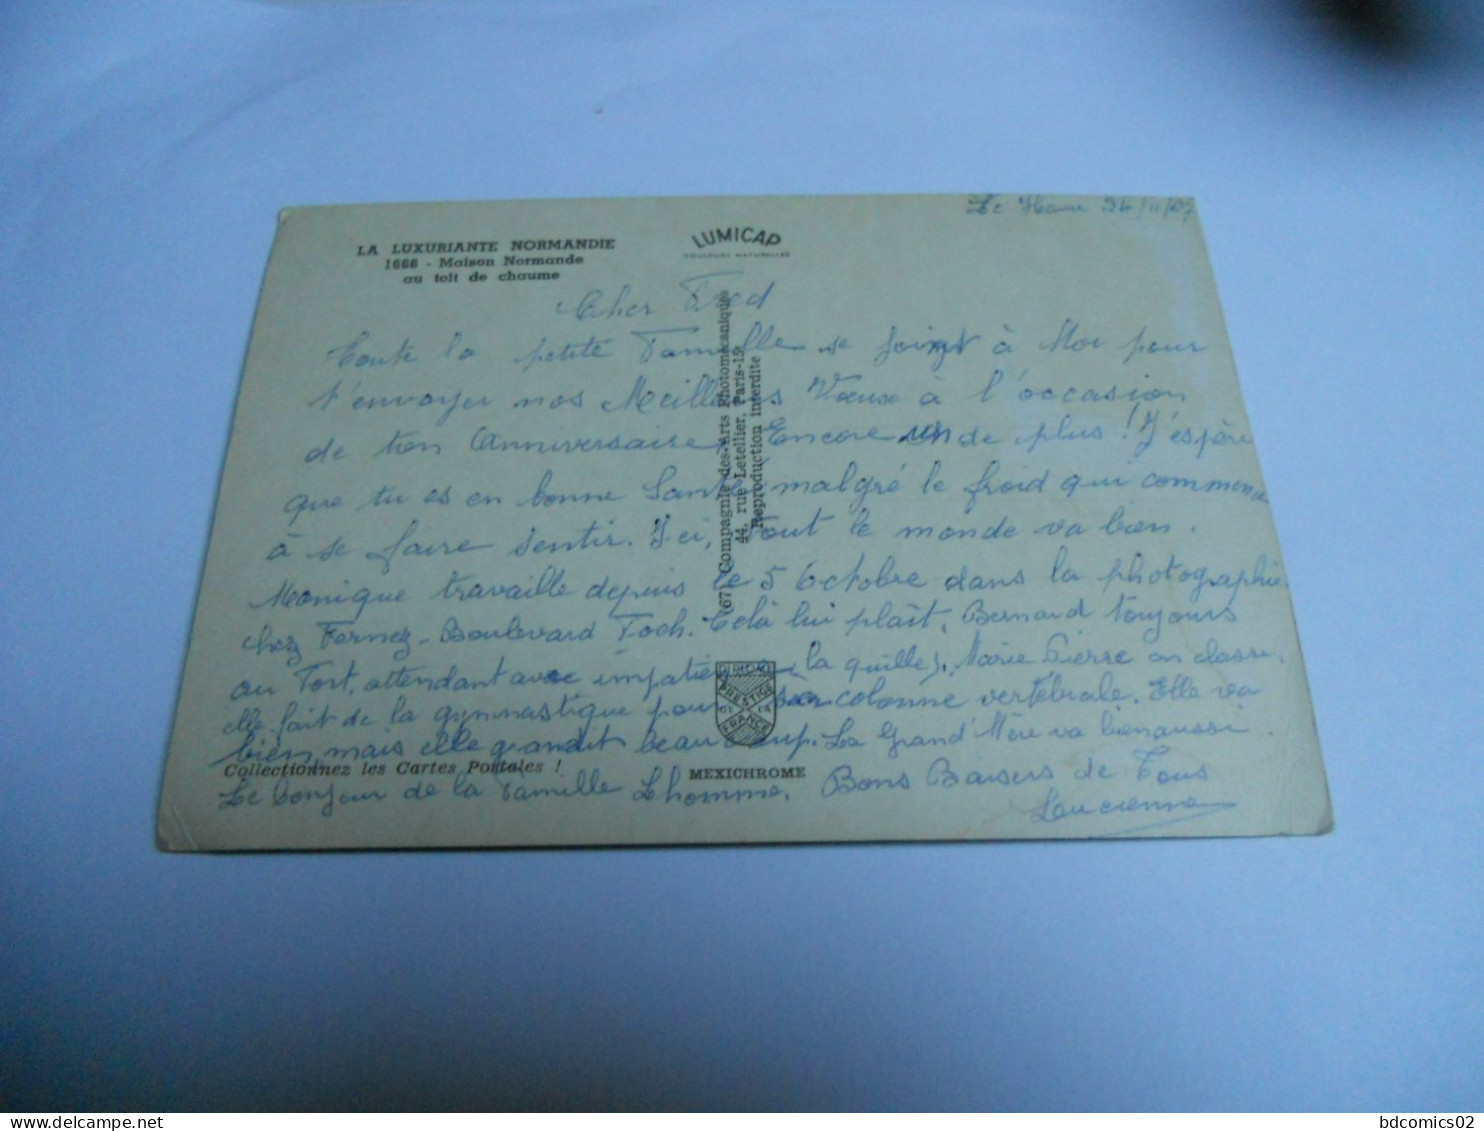 Le Havre 24/11/67
LA LUXURIANTE NORMANDIE
1666 - Maison Normande
au toit de chaume
LUMICAP
COULEURS NATURELLES
Cher Fred
Toute la petite Famille se joint à Moi pour
t'envoyer nos Meilleurs Vœux à l'occasion
de ton Anniversaire. Encore un de plus! J'espère
que tu es en bonne Santé malgré le froid qui commence
à se faire sentir. Ici, Tout le monde va bien.
Monique travaille depuis le 5 Octobre dans la photographie
chez Fernez - Boulevard Foch. Celà lui plaît, Bernard toujours
au Fort, attendant avec impatience (la quille), Marie Pierre en classe,
elle fait de la gymnastique pour sa colonne vertébrale. Elle va
bien, mais elle grandit beaucoup. La Grand'Mère va bien aussi.
Le bonjour de la Famille Lhomme. Bons Baisers de Tous
Lucienne
(67) Compagnie des Arts Photomécaniques
44, rue Letellier, Paris-15e
Reproduction interdite
PRESTIGE
DE LA
FRANCE
Collectionnez les Cartes Postales !
MEXICHROME
bdcomics02